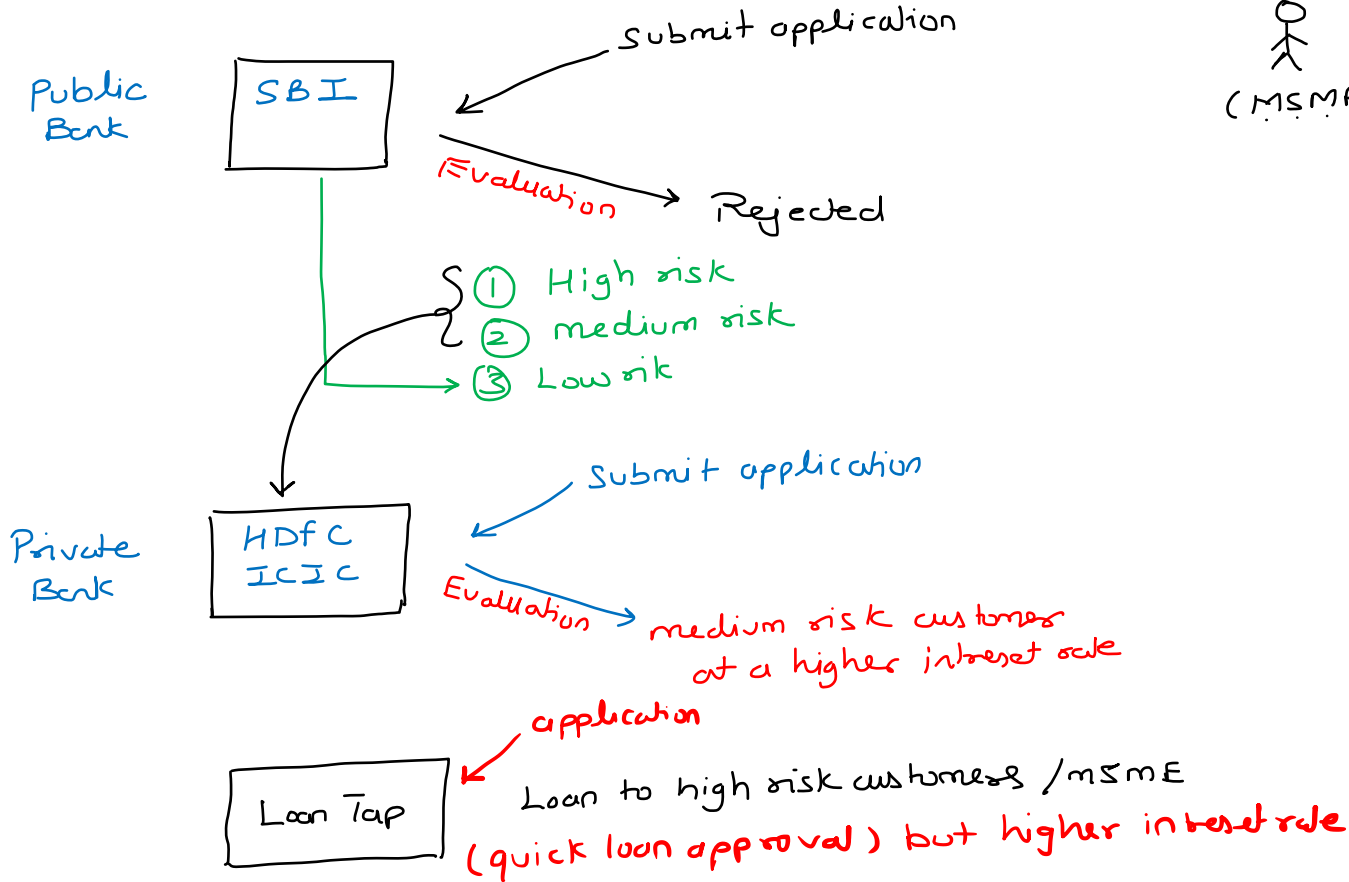 Submit application
(MSM
Public
Bank
SBI
Evaluation
Rejected
1 High risk
2 medium risk
3 Low rik
Submit application
Private
Bank
HDfC
ICIC
Evaluation
medium risk customer
at a higher intreset rate
application
Loan Tap
Loan to high risk customers /MSME
(quick loan approval) but higher intreset rate